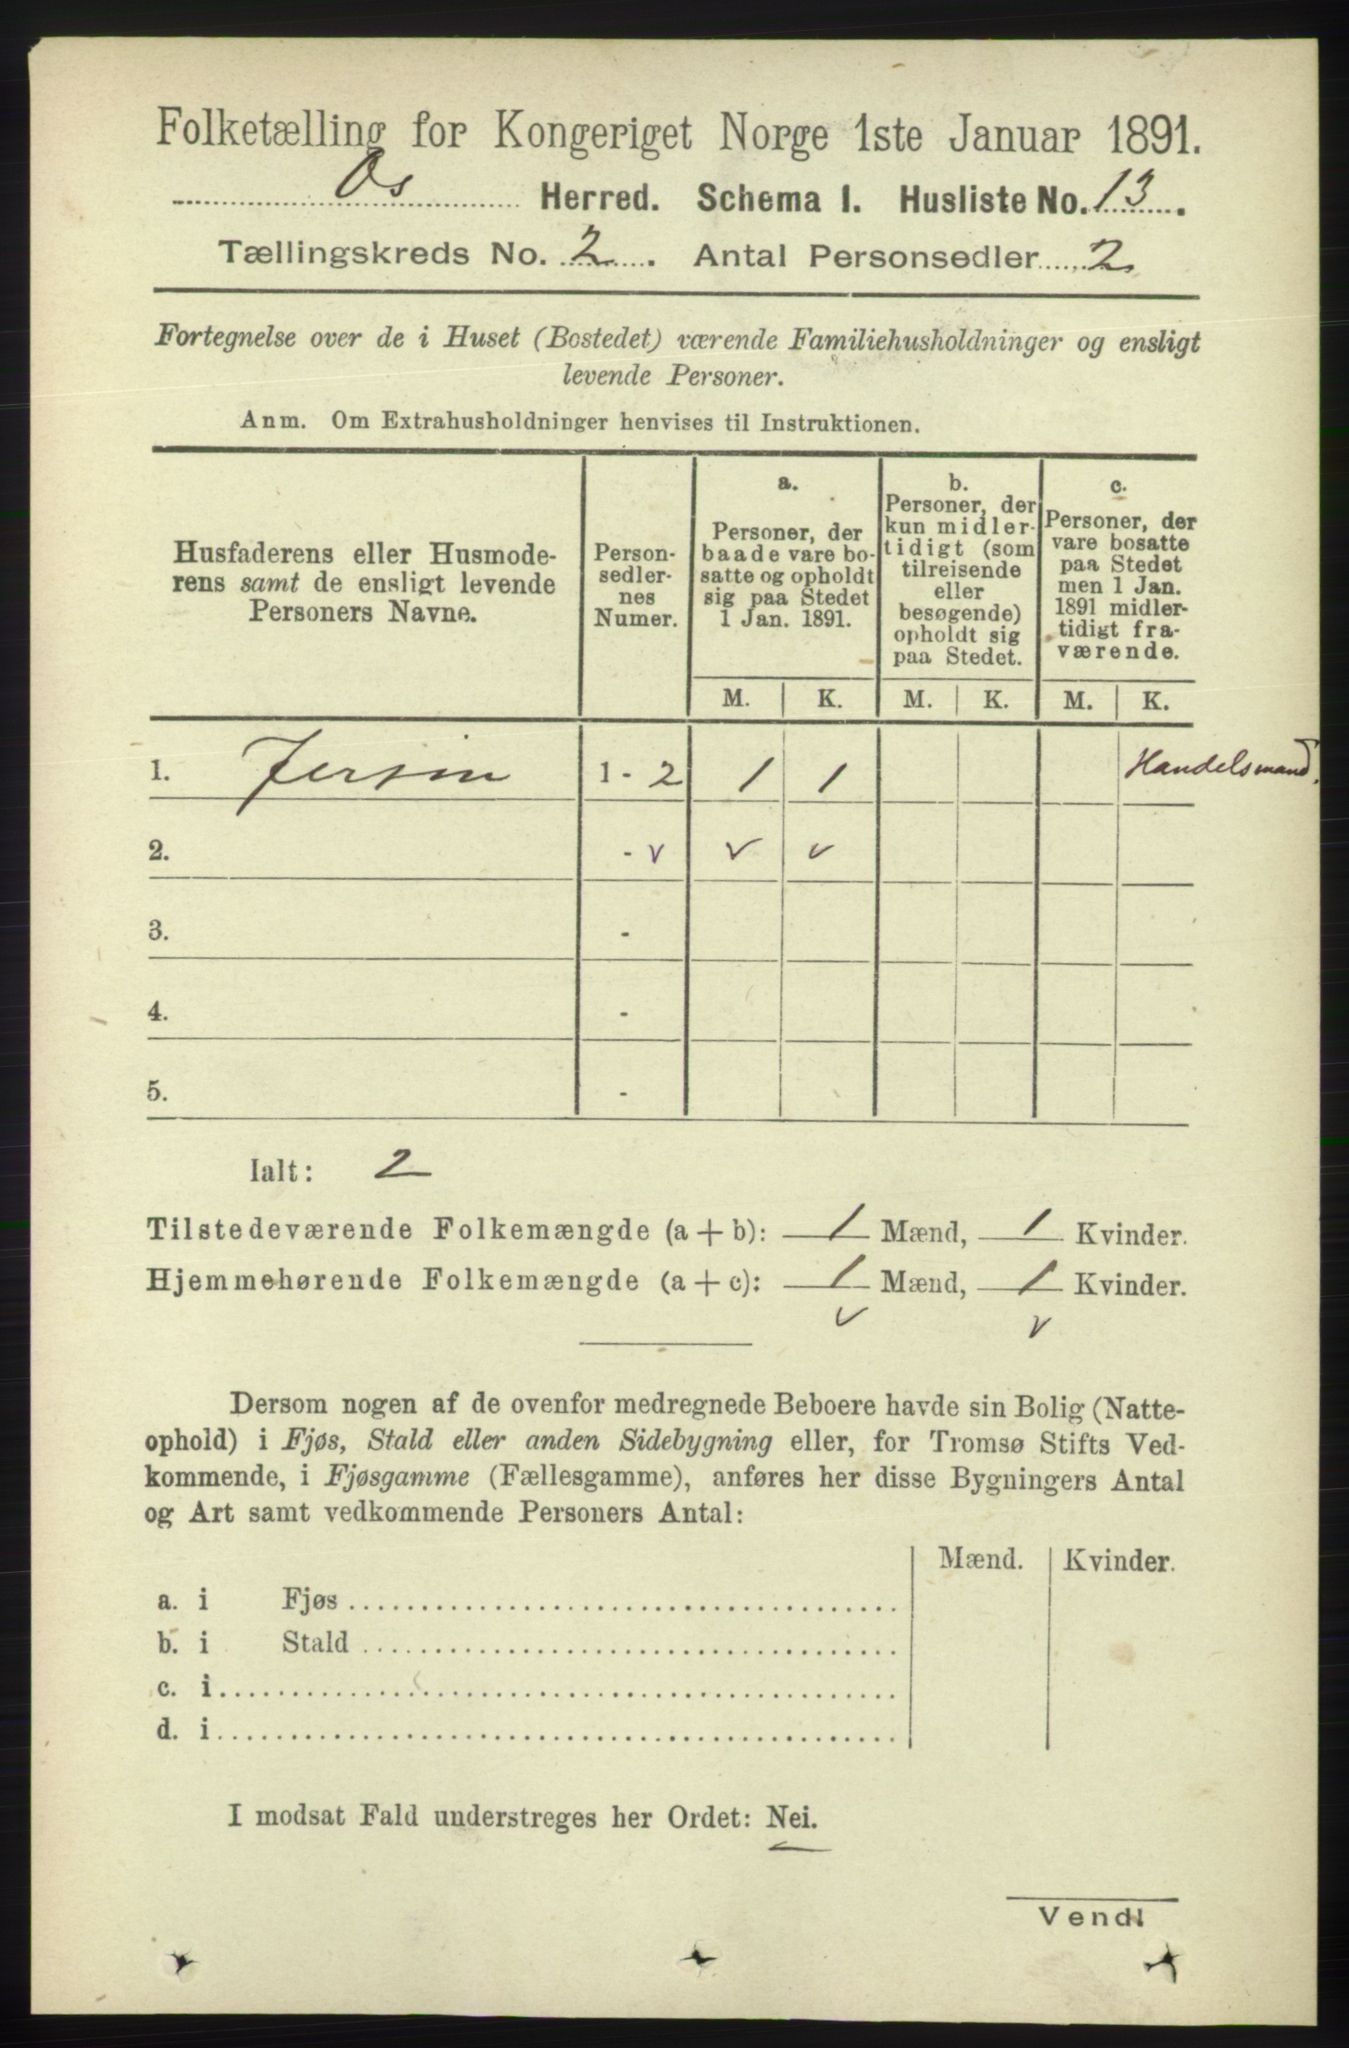 Folketælling for Kongeriget Norge 1ste Januar 1891.
Os Herred. Schema I. Husliste No. 13.
Tællingskreds No. 2. Antal Personsedler 2
Fortegnelse over de i Huset (Bostedet) værende Familiehusholdninger og ensligt
levende Personer.
Anm. Om Extrahusholdninger henvises til Instruktionen.
Husfaderens eller Husmode-
rens samt de ensligt levende
Personers Navne.
Person-
sedler-
nes
Numer.
a.
Personer, der
baade vare bo-
satte og opholdt
sig paa Stedet
1 Jan. 1891.
b.
Personer, der
kun midler-
tidigt (som
tilreisende
eller
besøgende)
opholdt sig
paa Stedet.
c.
Personer, der
vare bosatte
paa Stedet
men 1 Jan.
1891 midler-
tidigt fra-
værende.
M. K. M. K. M. K.
1. Jersin 1 - 2 1 1 Handelsmand.
2. - v v v
3. -
4. -
5. -
Ialt: 2
Tilstedeværende Folkemængde (a + b): 1 Mænd, 1 Kvinder.
Hjemmehørende Folkemængde (a + c): 1 Mænd, 1 Kvinder.
v v
Dersom nogen af de ovenfor medregnede Beboere havde sin Bolig (Natte-
ophold) i Fjøs, Stald eller anden Sidebygning eller, for Tromsø Stifts Ved-
kommende, i Fjøsgamme (Fællesgamme), anføres her disse Bygningers Antal
og Art samt vedkommende Personers Antal:
Mænd. Kvinder.
a. i Fjøs
b. i Stald
c. i
d. i
I modsat Fald understreges her Ordet: Nei.
Vend!